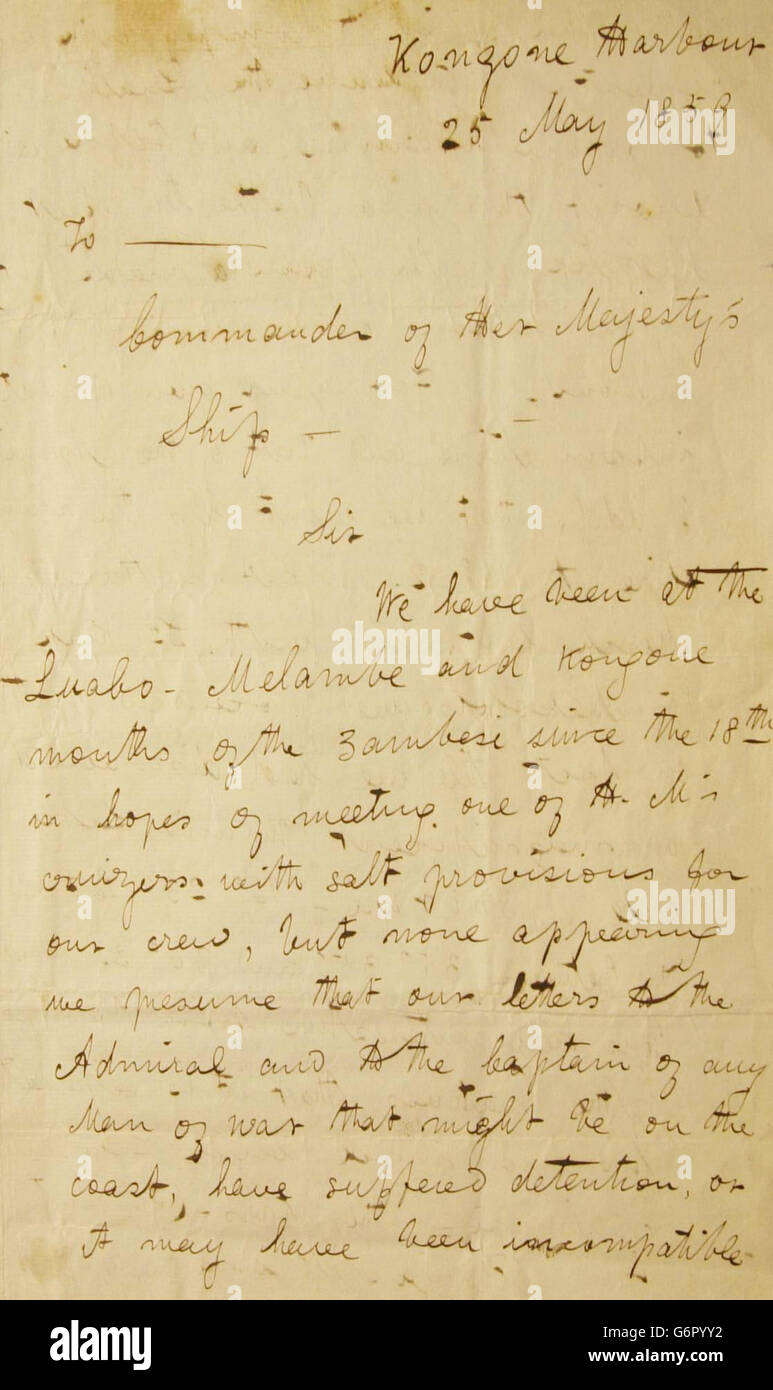 Kongone Harbour
25 May 1859
To ———
Commander of Her Majesty's
Ship —
Sir
We have been at the
Luabo - Melambe and Kongone
mouths of the Zambesi since the 18th
in hopes of meeting one of H. M's
cruizers with salt provisions for
our crew, but none appearing
we presume that our letters to the
Admiral and to the Captain of any
Man of war that might be on the
coast, have suffered detention, or
it may have been incompatible
alamy stock photo
alamy
Image ID: G6PYY2
www.alamy.com